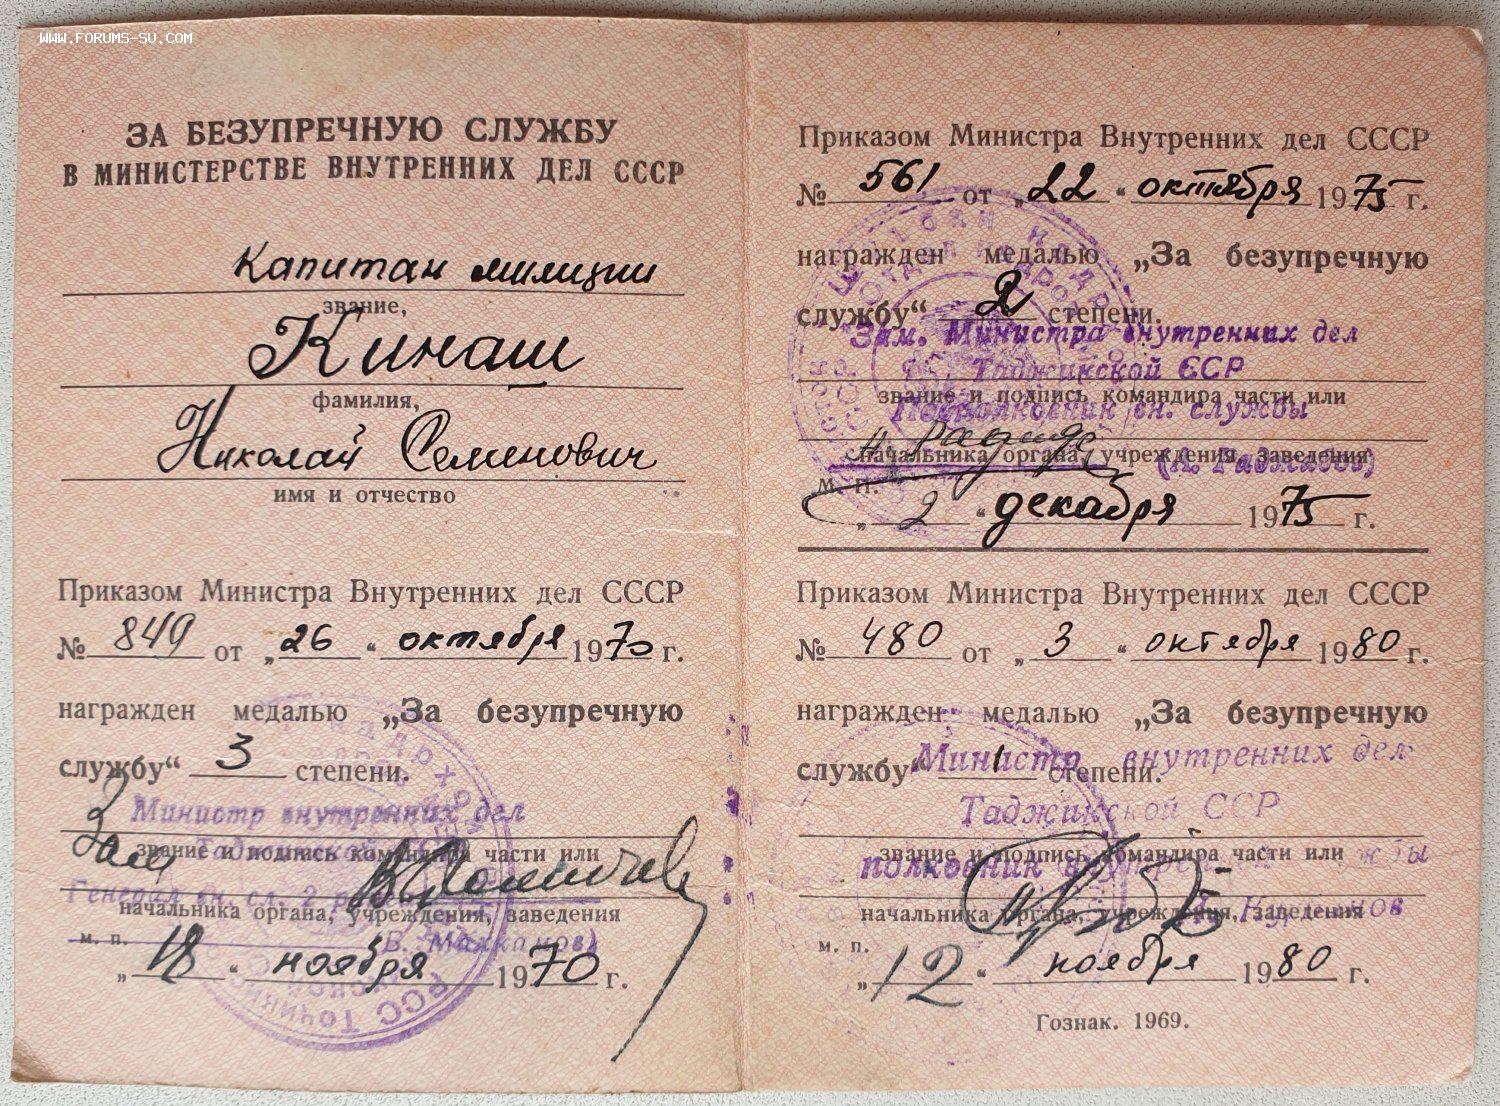 WWW.FORUMS-SU.COM
ЗА БЕЗУПРЕЧНУЮ СЛУЖБУ
В МИНИСТЕРСТВЕ ВНУТРЕННИХ ДЕЛ СССР
Капитан милиции
звание,
Кинаш
фамилия,
Николай Семенович
имя и отчество
Приказом Министра Внутренних дел СССР
№ 849 от „26“ октября 1970 г.
награжден медалью „За безупречную
службу“ 3 степени.
Зам Министр внутренних дел
Таджикской
звание и подпись командира части или
Генерал вн. сл. 2
начальника органа, учреждения, заведения
м. п.
„18“ ноября 1970 г.
Приказом Министра Внутренних дел СССР
№ 561 от „22“ октября 1975 г.
награжден медалью „За безупречную
службу“ 2 степени.
Зам. Министра внутренних дел
Таджикской ССР
звание и подпись командира части или
Подполковник вн. службы
начальника органа, учреждения, заведения
(А. Раджабов)
м. п.
„2“ декабря 1975 г.
Приказом Министра Внутренних дел СССР
№ 480 от „3“ октября 1980 г.
награжден медалью „За безупречную
службу“ 1 степени.
Министр внутренних дел
Таджикской ССР
звание и подпись командира части или
полковник
начальника органа, учреждения, заведения
м. п.
„12“ ноября 1980 г.
Гознак. 1969.